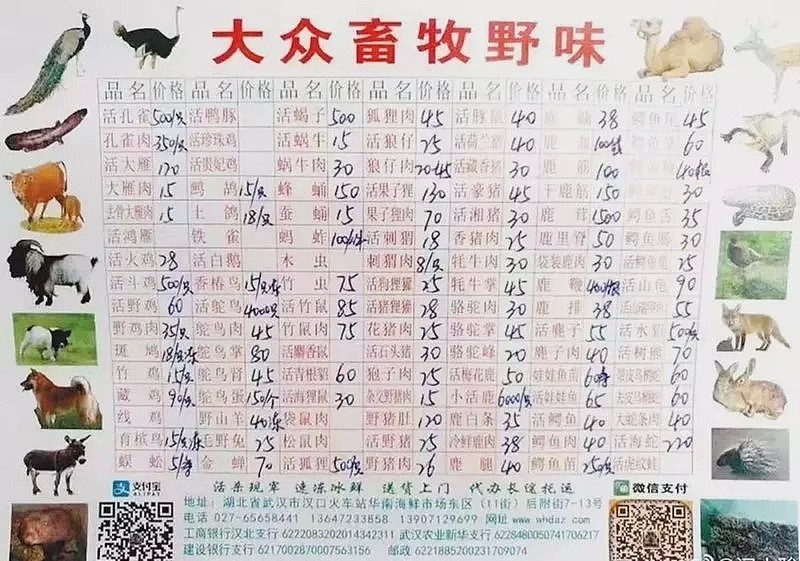 大众畜牧野味
品名 价格 品名 价格 品名 价格 品名 价格 品名 价格 品名 价格 品名 价格
活孔雀 500/只 活鸭豚 活蝎子 500 狐狸肉 45 活豚鼠 40 38 45
孔雀肉 350/只 活珍珠鸡 活蜗牛 15 活狼仔 25 活荷兰猪 40 60
活大雁 120 活贵妃鸡 蜗牛肉 30 狼仔肉 活藏香猪 30 鹿筋 100
大雁肉 15 鹧鸪 15/只 蜂蛹 150 活果子狸 130 活豪猪 45 干鹿筋 150 30
去骨大雁肉 15 土鸽 18/只 蚕蛹 15 果子狸肉 70 活湘猪 30 鹿茸 1500 鳄鱼舌 35
活鸿雁 铁雀 蚂蚱 活刺猬 18 香猪肉 25 鹿里脊 50 鳄鱼肠 30
活火鸡 28 活白鹅 木虫 刺猬肉 8/只 牦牛肉 30 袋装鹿肉 30 活鳄鱼龟 25
活斗鸡 500/只 香椿鸟 竹虫 75 活狗狸獾 25 牦牛掌 45 鹿鞭 活山龟 90
活野鸡 60 活鸵鸟 4000只 活竹鼠 85 活猪狸獾 28 骆驼肉 30 鹿排 38 55
野鸡肉 35/只 鸵鸟肉 45 竹鼠肉 75 花猪肉 25 骆驼掌 45 活鹿子 55 活水獭
斑鸠 鸵鸟掌 80 活麝香鼠 活石头猪 30 骆驼峰 20 鹿子肉 40 活树熊 70
竹鸡 15/只 鸵鸟肾 45 活青根貂 60 狍子肉 25 活梅花鹿 50 娃娃鱼苗 60
藏鸡 90/只 鸵鸟蛋 150/个 活海狸鼠 30 杂交野猪肉 15 小活鹿 6000/只 活娃娃鱼 65 60
线鸡 野山羊 袋鼠肉 野猪肚 120 鹿白条 35 活鳄鱼 40 大蛇条肉 40
育槟鸟 巨野兔 25 松鼠肉 活野猪 25 冷鲜鹿肉 38 鳄鱼肉 40 活海蛇 220
蜈蚣 金蝉 70 活狐狸 500只 野猪肉 26 鹿腿 40 鳄鱼苗 活虎纹蛙
支付宝 ALIPAY 活杀现宰 速冻冰鲜 送货上门 代办长途托运 微信支付
地址：湖北省武汉市汉口火车站华南海鲜市场东区（11街）后附街7-13号
电话：027-65658441 13647233858 13907129699 网址 www.whdaz.com
工商银行汉北支行 6222083202014342311 武汉农业新华支行 6228480050741706217
建设银行支行 6217002870007563156 邮政 6221885200231709074